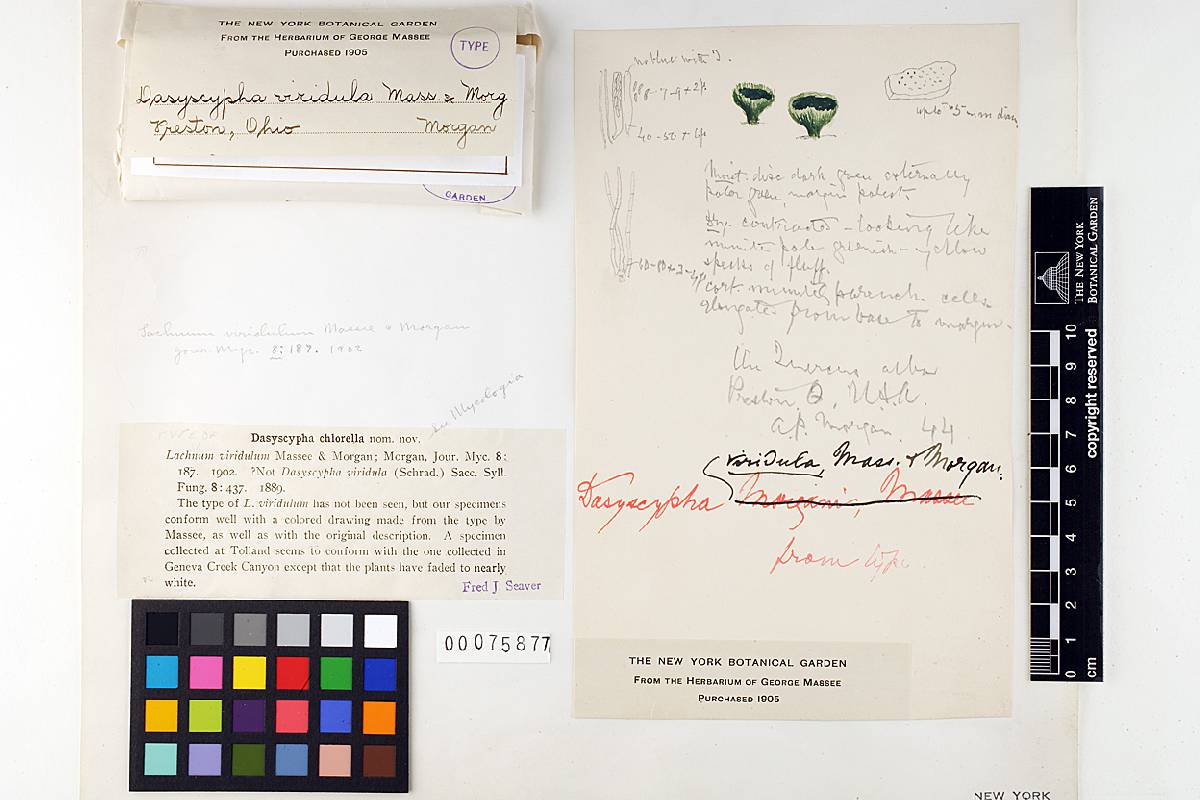 THE NEW YORK BOTANICAL GARDEN
FROM THE HERBARIUM OF GEORGE MASSEE
PURCHASED 1905
TYPE
Dasyscypha viridula Mass & Morg
Preston, Ohio Morgan
GARDEN
Lachnum viridulum Massee & Morgan
Jour. Myc. 8: 187. 1902
See Mycologia
TYPE OF
Dasyscypha chlorella nom. nov.
Lachnum viridulum Massee & Morgan; Morgan, Jour. Myc. 8:
187. 1902. ?Not Dasyscypha viridula (Schrad.) Sacc. Syll.
Fung. 8: 437. 1889.
The type of L. viridulum has not been seen, but our specimens
conform well with a colored drawing made from the type by
Massee, as well as with the original description. A specimen
collected at Tolland seems to conform with the one collected in
Geneva Creek Canyon except that the plants have faded to nearly
white.
Fred J. Seaver
00075877
no blue with I.
7-9 + 2μ
40-50 + 4μ
up to .5 mm diam.
Moist. disc dark green externally
paler green, margin palest.
Dry. contracted - looking like
minute pale greenish-yellow
specks of fluff.
60-80 + 3-4μ
cort. minutely parench. cells
elongated from base to margin.
On Quercus alba
Preston, O., U.S.A.
A.P. Morgan. 44
viridula, Mass. & Morgan.
Dasyscypha Morgani, Massee
from type.
THE NEW YORK BOTANICAL GARDEN
FROM THE HERBARIUM OF GEORGE MASSEE
PURCHASED 1905
THE NEW YORK
BOTANICAL GARDEN
copyright reserved
10
9
8
7
6
5
4
3
2
1
0
cm
NEW YORK